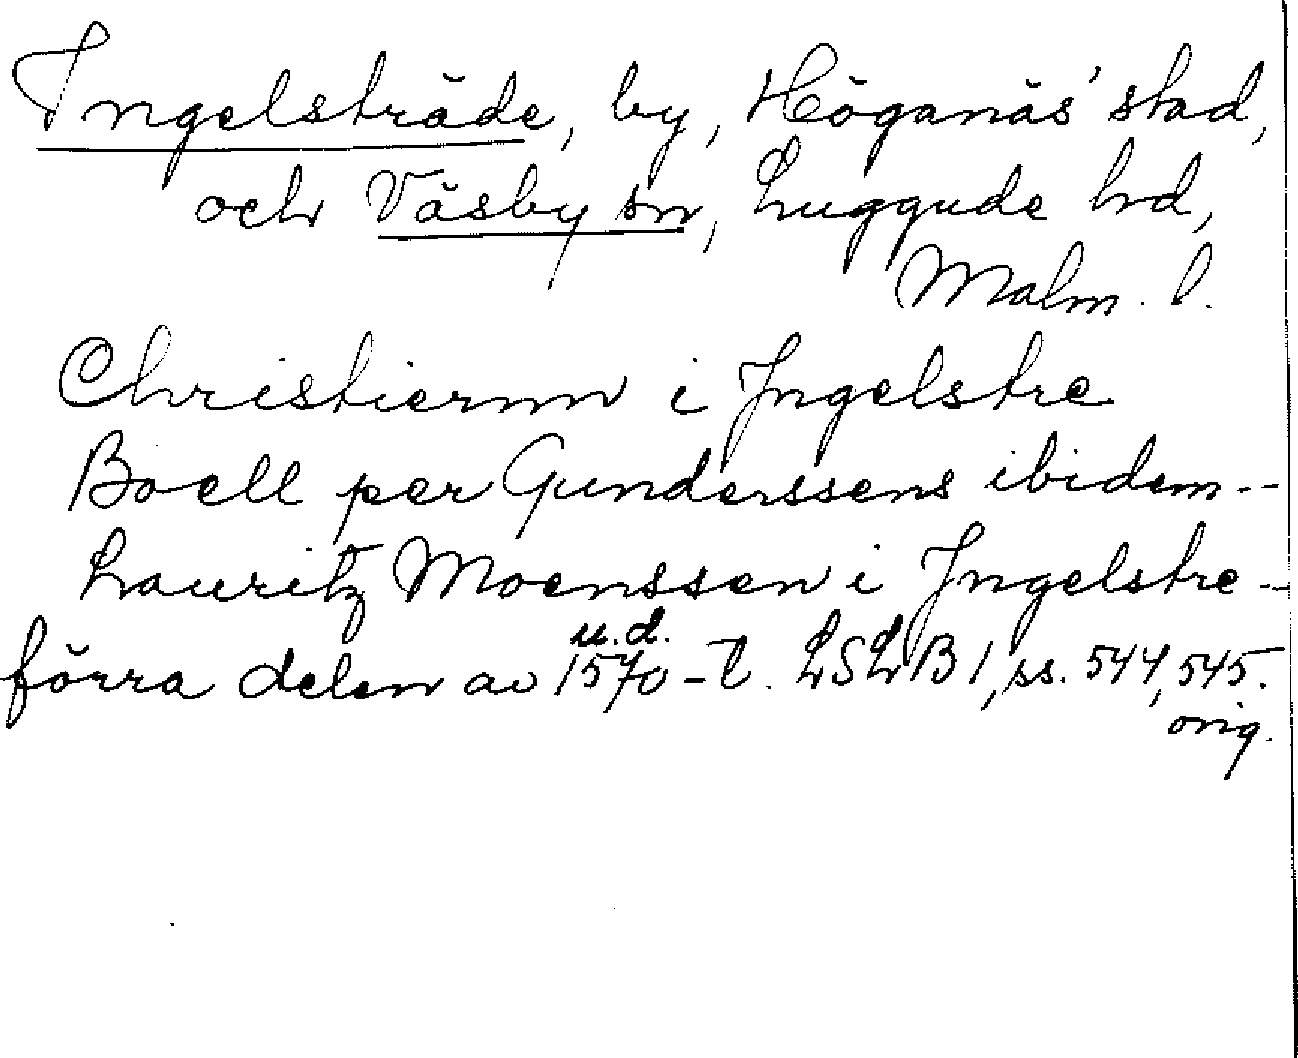 Ingelsträde, by, Höganäs' stad,
och Väsby sn, Luggude hd,
Malm. l.
Christiernn i Jngelstre
Boell per Gunderssens ibidem--
Lauritz Moenssen i Jngelstre-
u.d.
förra delen av 1570-t. LSLB1, ss. 544, 545.
orig.